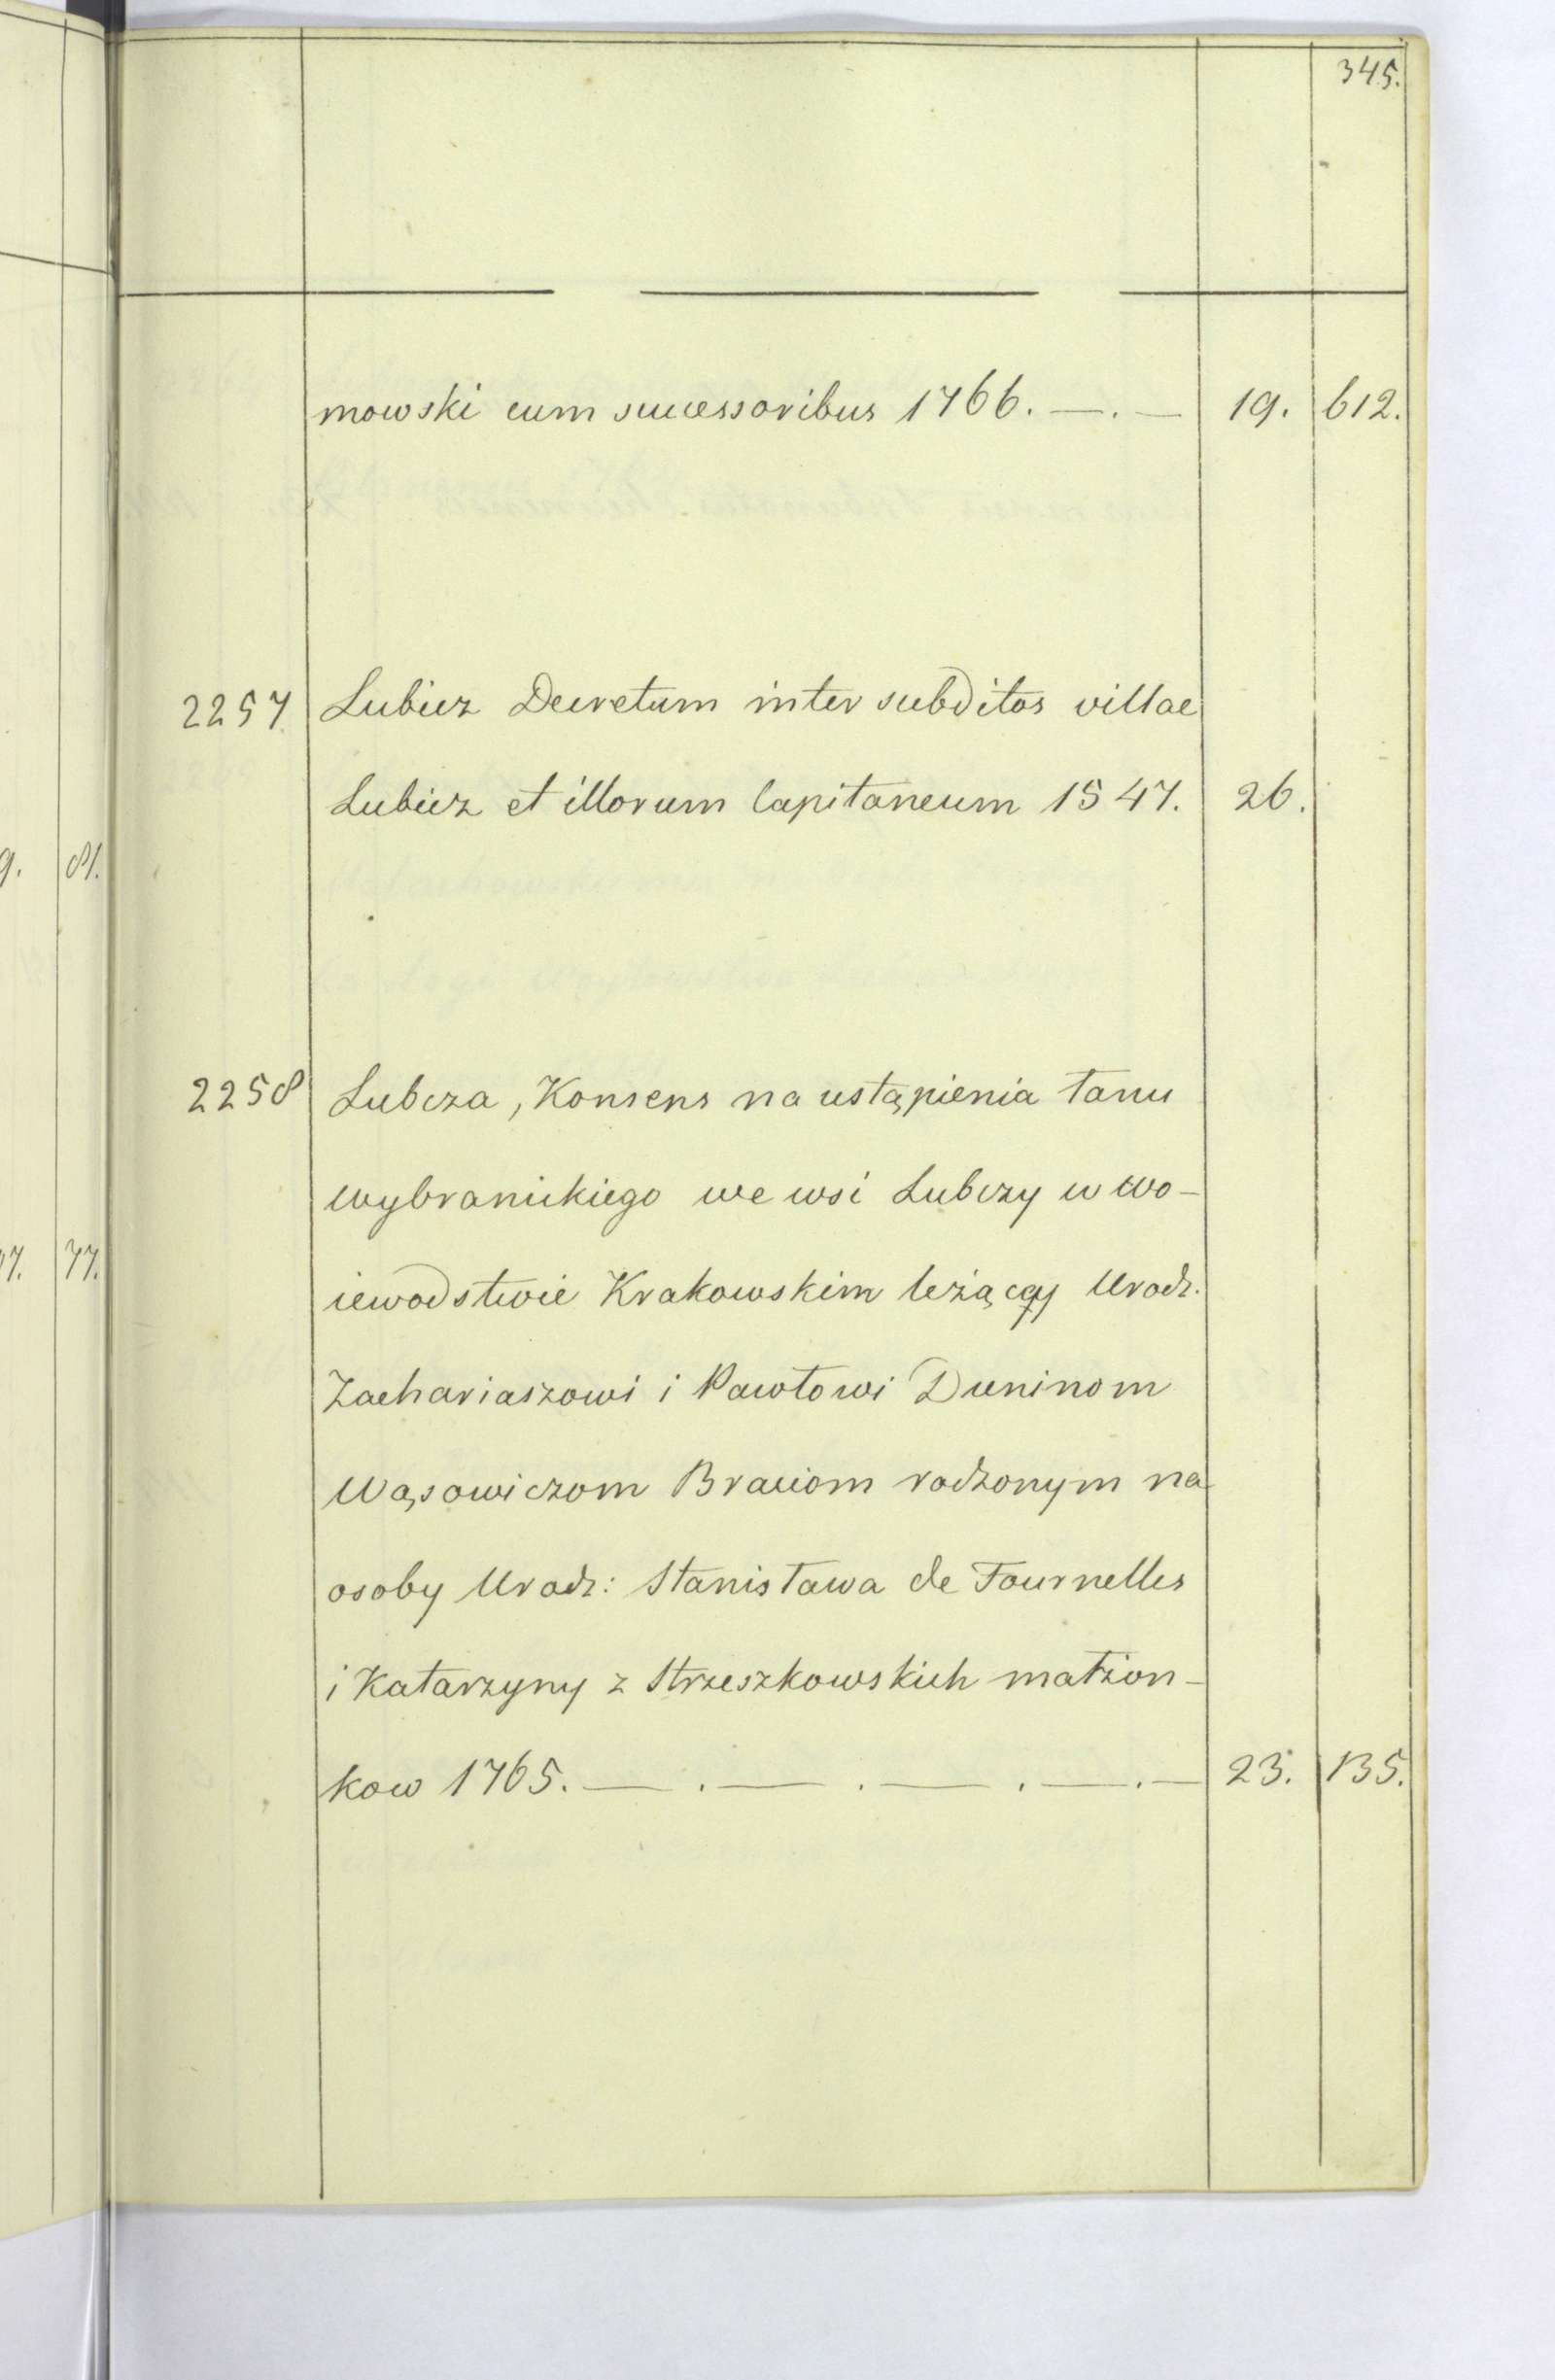 345.
mowski cum successoribus 1766. —.— 19. 612.
2257 Lubicz Decretum inter subditos villae
Lubicz et illorum Capitaneum 1547. 26.
9. 81.
2258 Lubcza, Konsens na ustąpienia łanu
wybranickiego we wsi Lubczy w wo-
iewodstwie Krakowskim leżący Urodz.
77.
Zachariaszowi i Pawłowi Duninom
Wąsowiczom Braciom rodzonym na
osoby Urodz: Stanisława de Fournelles
i Katarzyny z Strzeszkowskich małżon-
kow 1765. — . — . — . — . — 23. 135.